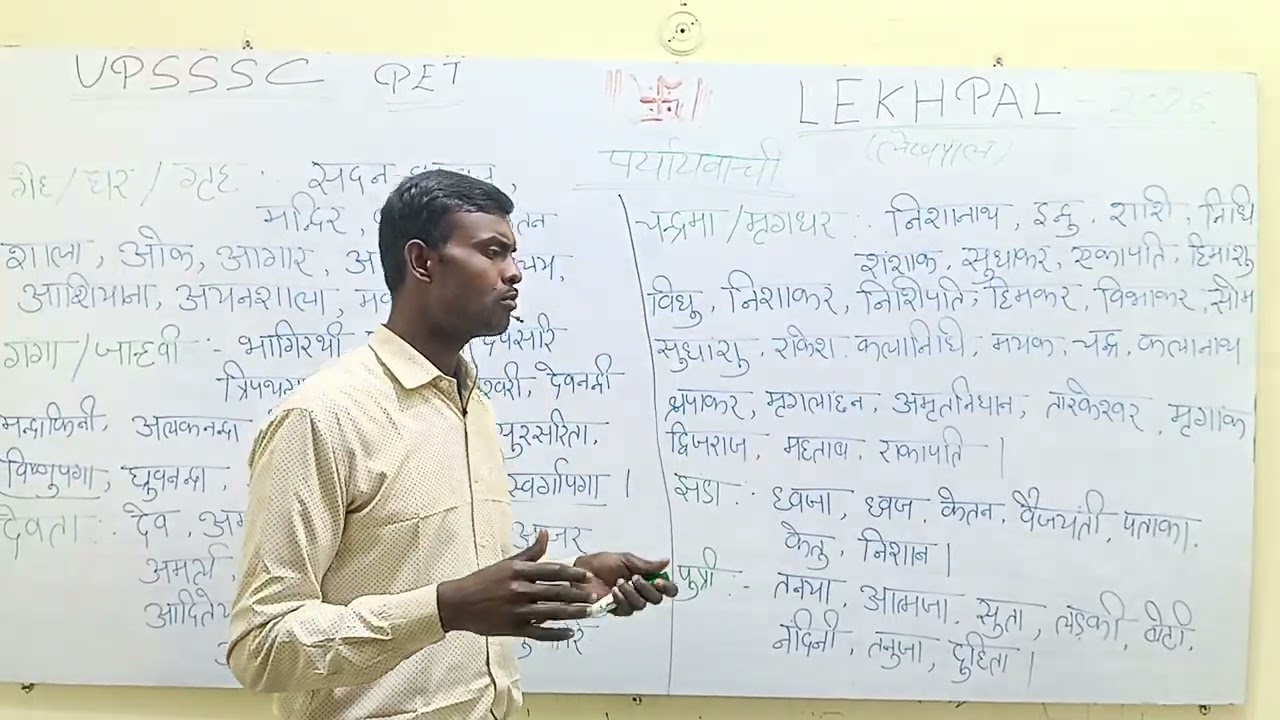 UPSSSC PET
LEKHPAL - 2025
(लेखपाल)
पर्यायवाची
गेह / घर / गृह : सदन,
मन्दिर,
शाला, ओक, आगार,
आशियाना, अयनशाला,
गंगा / जान्हवी :- भागिरथी
देवनदी
मन्दाकिनी, अलकनन्दा
सुरसरिता,
विष्णुपगा, ध्रुवनन्दा,
स्वर्गापगा |
देवता : देव,
अजर
अमर्त्य,
चन्द्रमा / मृगधर : निशानाथ, इन्दु, शशि, निधि
शशांक, सुधाकर, एकापति, हिमांशु
विधु, निशाकर, निशिपति, हिमकर, विभाकर, सोम
सुधांशु, राकेश कलानिधि, मयंक, चन्द्र, कलानाथ
क्षपाकर, मृगलांछन, अमृतनिधान, तारकेश्वर, मृगांक
द्विजराज, महताब, राकापति |
झंडा : ध्वजा, ध्वज, केतन, वैजयंती, पताका,
केतु, निशान |
पुत्री :- तनया, आत्मजा, सुता, लड़की, बेटी,
नंदिनी, तनुजा, दुहिता |